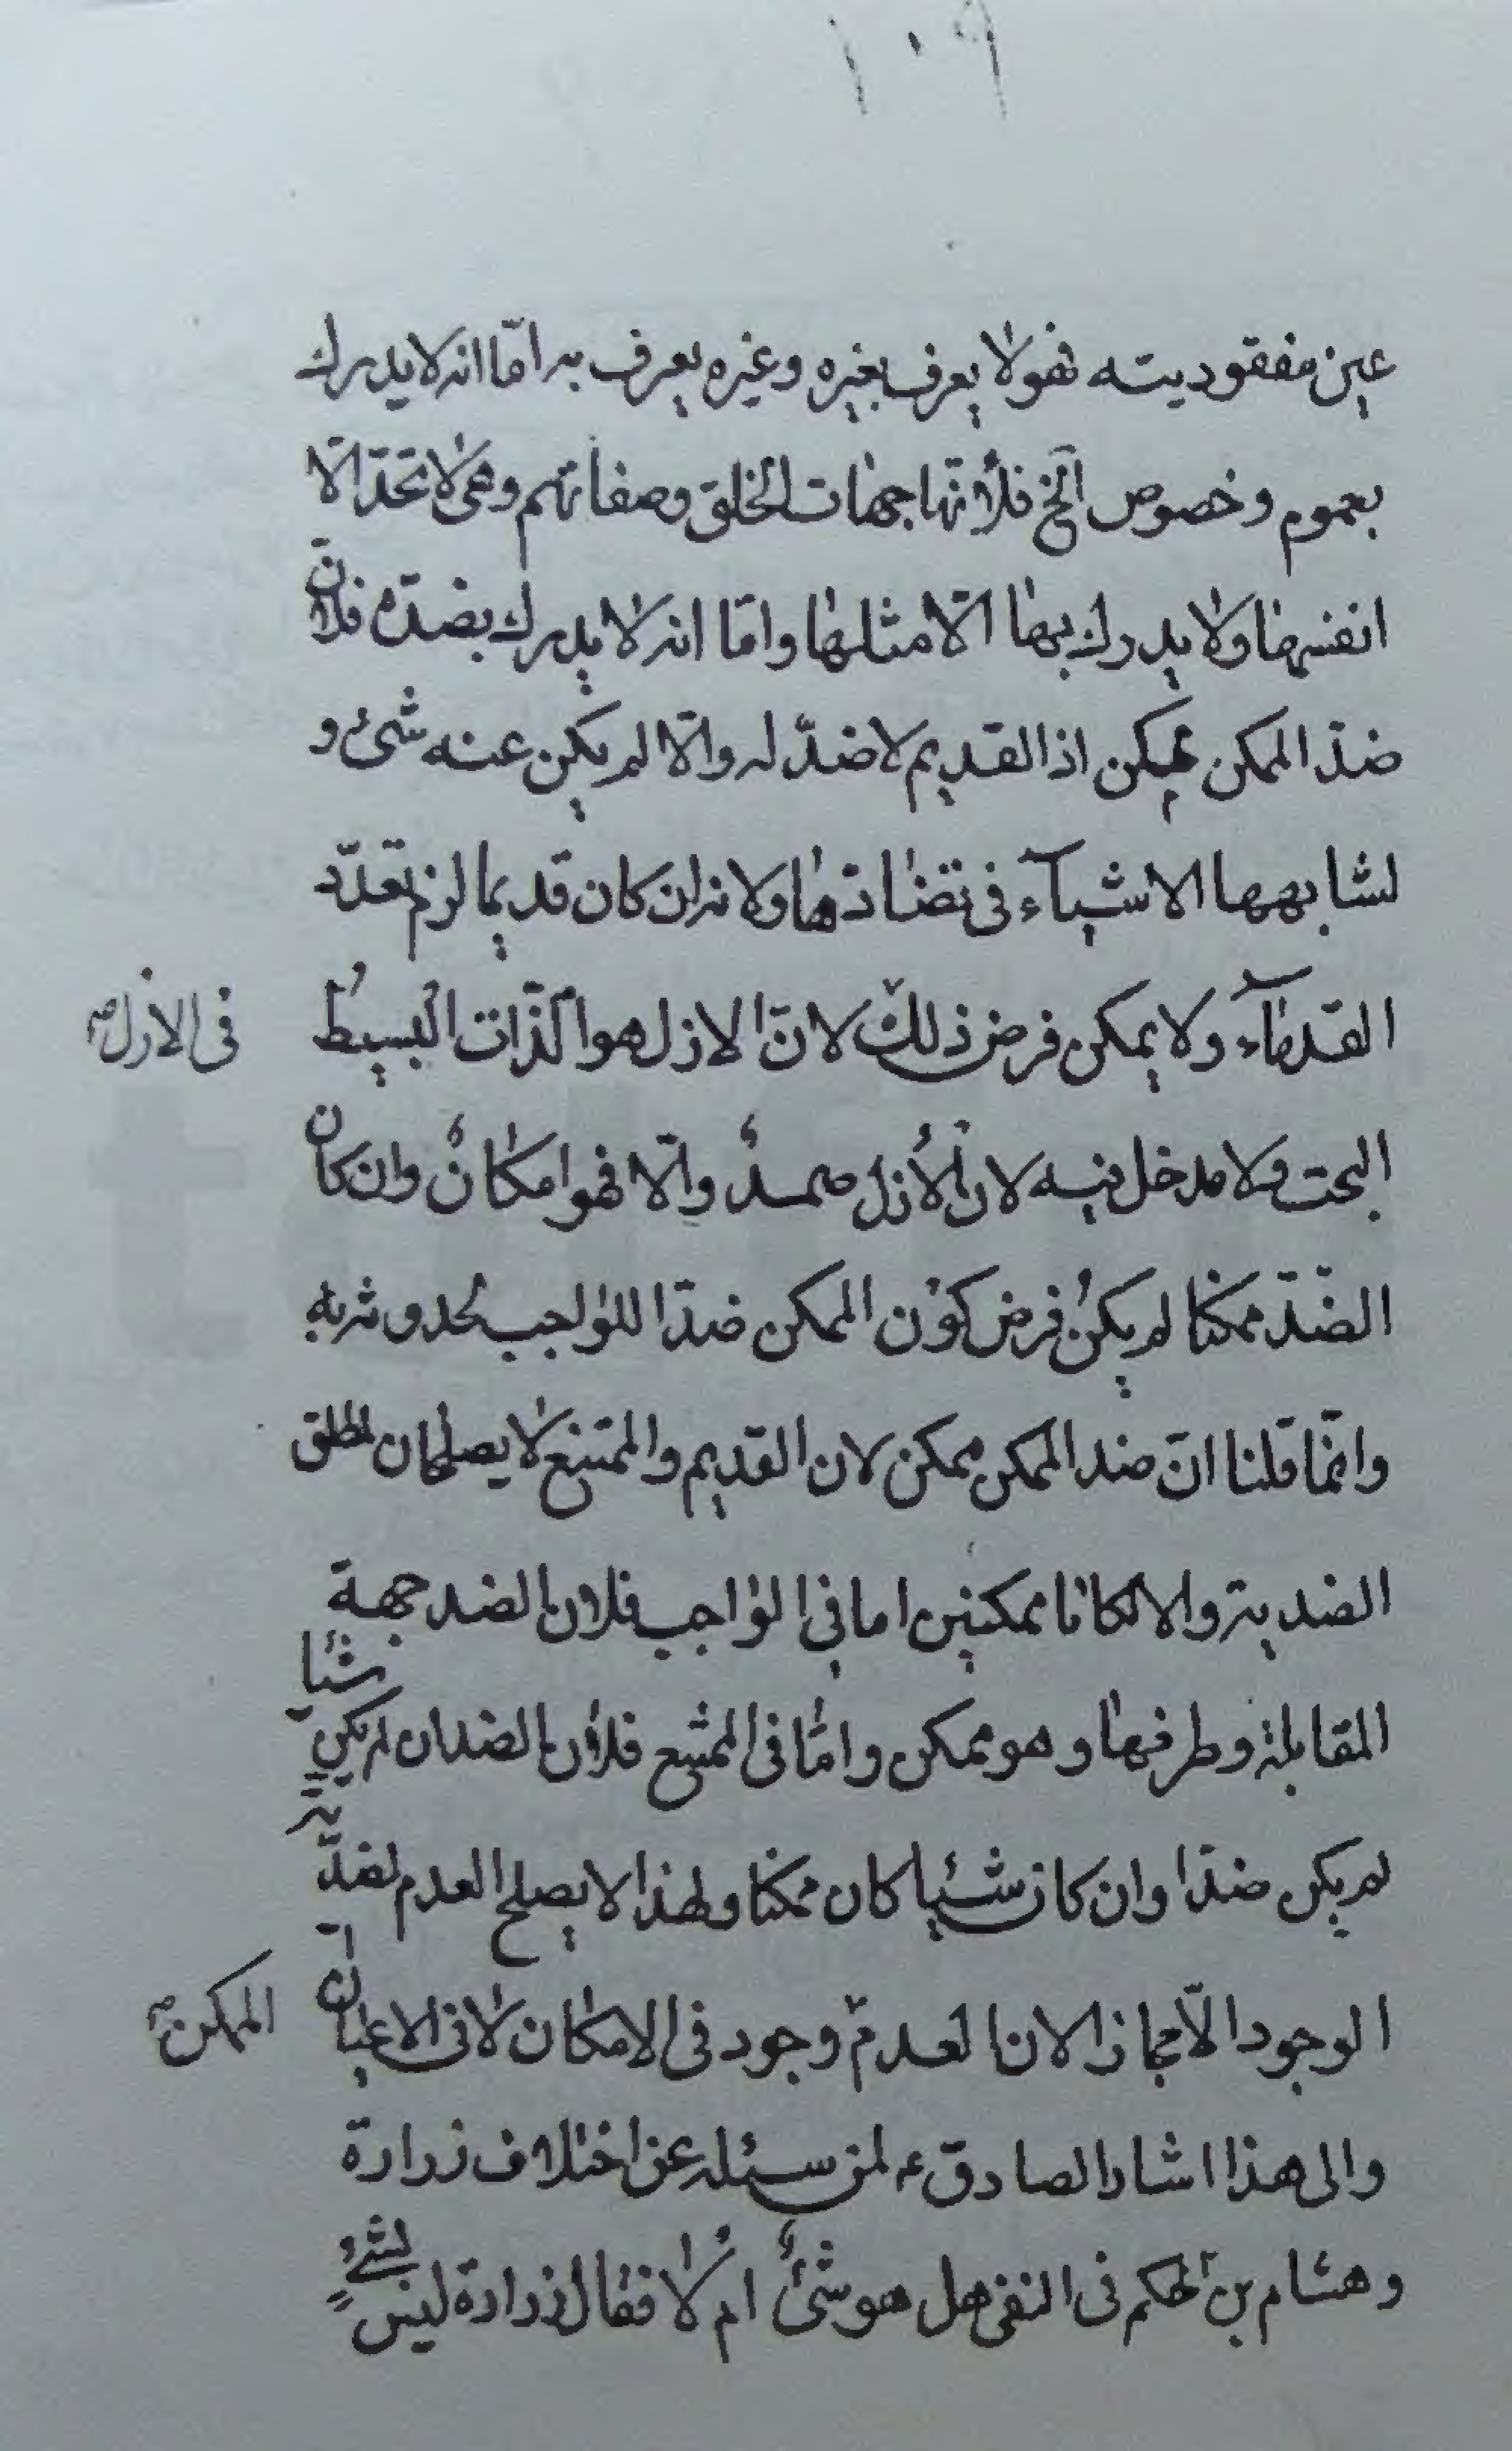 ١٠٩
عين مفقوديته فهو لا يعرف بغيره وغيره يعرف به امّا انه لا يدرك
بعموم وخصوص الخ فلأنّها جهات الخلق وصفاتهم وهي لا تحدّ الّا
انفسها ولا يدرك بها الّا امثالها وامّا انه لا يدرك بضدّه فلأنّ
ضدّ الممكن ممكن اذ القديم لا ضدّ له والّا لم يكن عنه شئ و
لشابهها الاشيآء فى تضادّها ولانه ان كان قديما لزم تعدّد
القدمآء ولا يمكن فرض ذلك لانّ الازل هو الذّات البسيطُ
فى الازل صح
البحت ولا مدخل فيه لان الأزل صمدٌ والّا فهو امكانٌ وان كان
الضّدّ ممكنا لم يكن فرض كون الممكن ضدّا للواجب لحدوثه به
وانّما قلنا انّ ضد الممكن ممكن لان القديم والممتنع لا يصلحان لمطلق
الضدية والا لكانا ممكنين اما فى الواجب فلان الضد جهة
المقابلة وطرفها وهو ممكن وامّا فى الممتنع فلأن الضد ان لم يكن شيئا
لم يكن ضدّا وان كان شيئا كان ممكنا ولهذا لا يصلح العدم لضدّية
الوجود الّا مجازا لان العدم وجود فى الامكان لا فى الاعيان
الممكن صح
والى هذا اشار الصادق ع لمن سئله عن اختلاف زرارة
وهشام بن الحكم فى النفى هل هو شئٌ ام لا فقال زرارة ليس بشئٍ